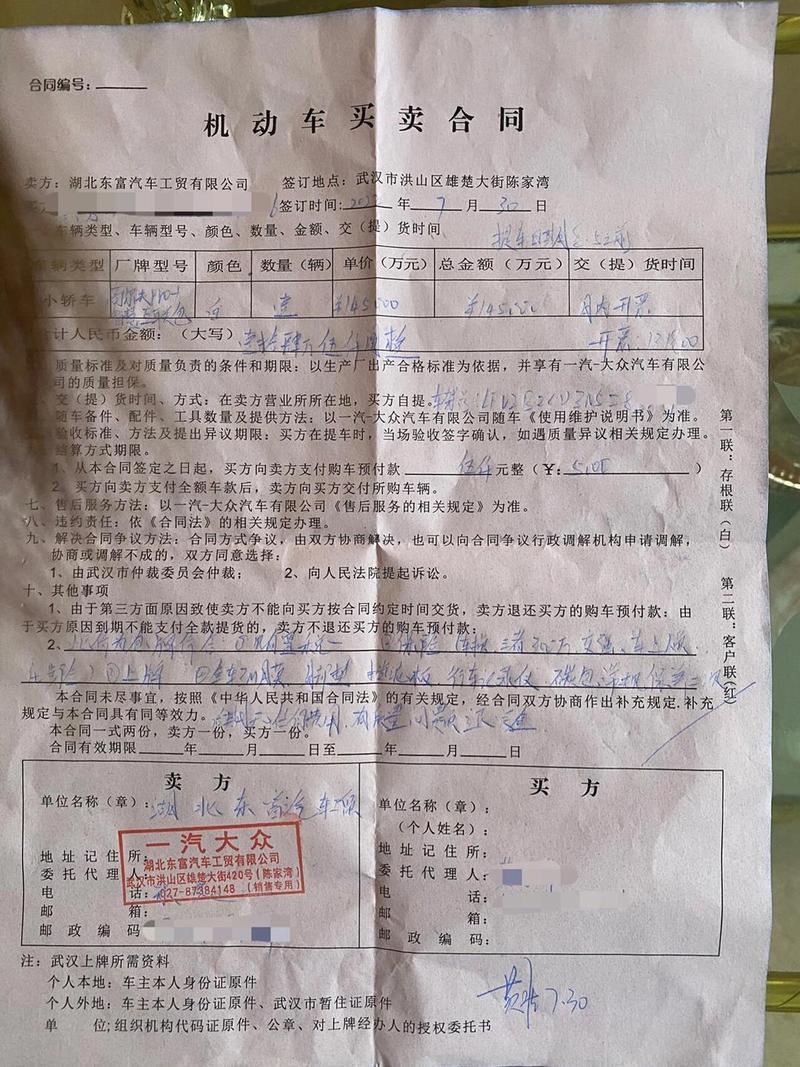 合同编号：
机动车买卖合同
卖方：湖北东富汽车工贸有限公司 签订地点：武汉市洪山区雄楚大街陈家湾
签订时间：2022年7月30日
车辆类型、车辆型号、颜色、数量、金额、交（提）货时间
车辆类型 厂牌型号 颜色 数量（辆） 单价（万元） 总金额（万元） 交（提）货时间
小轿车 白 壹 ¥145000 ¥145000 月内开票
合计人民币金额：（大写）
质量标准及对质量负责的条件和期限：以生产厂出产合格标准为依据，并享有一汽-大众汽车有限公
司的质量担保。
交（提）货时间、方式：在卖方营业所所在地，买方自提。
随车备件、配件、工具数量及提供方法：以一汽-大众汽车有限公司随车《使用维护说明书》为准。
验收标准、方法及提出异议期限：买方在提车时，当场验收签字确认，如遇质量异议相关规定办理。
结算方式期限。
1、从本合同签定之日起，买方向卖方支付购车预付款 伍仟元整（¥： ）
2、买方向卖方支付全额车款后，卖方向买方交付所购车辆。
七、售后服务方法：以一汽-大众汽车有限公司《售后服务的相关规定》为准。
八、违约责任：依《合同法》的相关规定办理。
九、解决合同争议方法：合同方式争议，由双方协商解决，也可以向合同争议行政调解机构申请调解，
协商或调解不成的，双方同意选择：
1、由武汉市仲裁委员会仲裁； 2、向人民法院提起诉讼。
十、其他事项
1、由于第三方面原因致使卖方不能向买方按合同约定时间交货，卖方退还买方的购车预付款；由
于买方原因到期不能支付全款提货的，卖方不退还买方的购车预付款；
2、
上牌 行车记录仪
本合同未尽事宜，按照《中华人民共和国合同法》的有关规定，经合同双方协商作出补充规定.补充
规定与本合同具有同等效力。
本合同一式两份，卖方一份，买方一份。
合同有效期限 年 月 日至 年 月 日
第一联：存根联（白） 第二联：客户联（红）
卖方
单位名称（章）：湖北东富汽车
地址记住所：
委托代理人
电话：
邮箱：
邮政编码
一汽大众
湖北东富汽车工贸有限公司
武汉市洪山区雄楚大街420号（陈家湾）
027-87384148（销售专用）
买方
单位名称（章）：
（个人姓名）：
地址记住所：
委托代理人：
电话：
邮箱：
邮政编码：
注：武汉上牌所需资料
个人本地：车主本人身份证原件
个人外地：车主本人身份证原件、武汉市暂住证原件
单位;组织机构代码证原件、公章、对上牌经办人的授权委托书
7.30